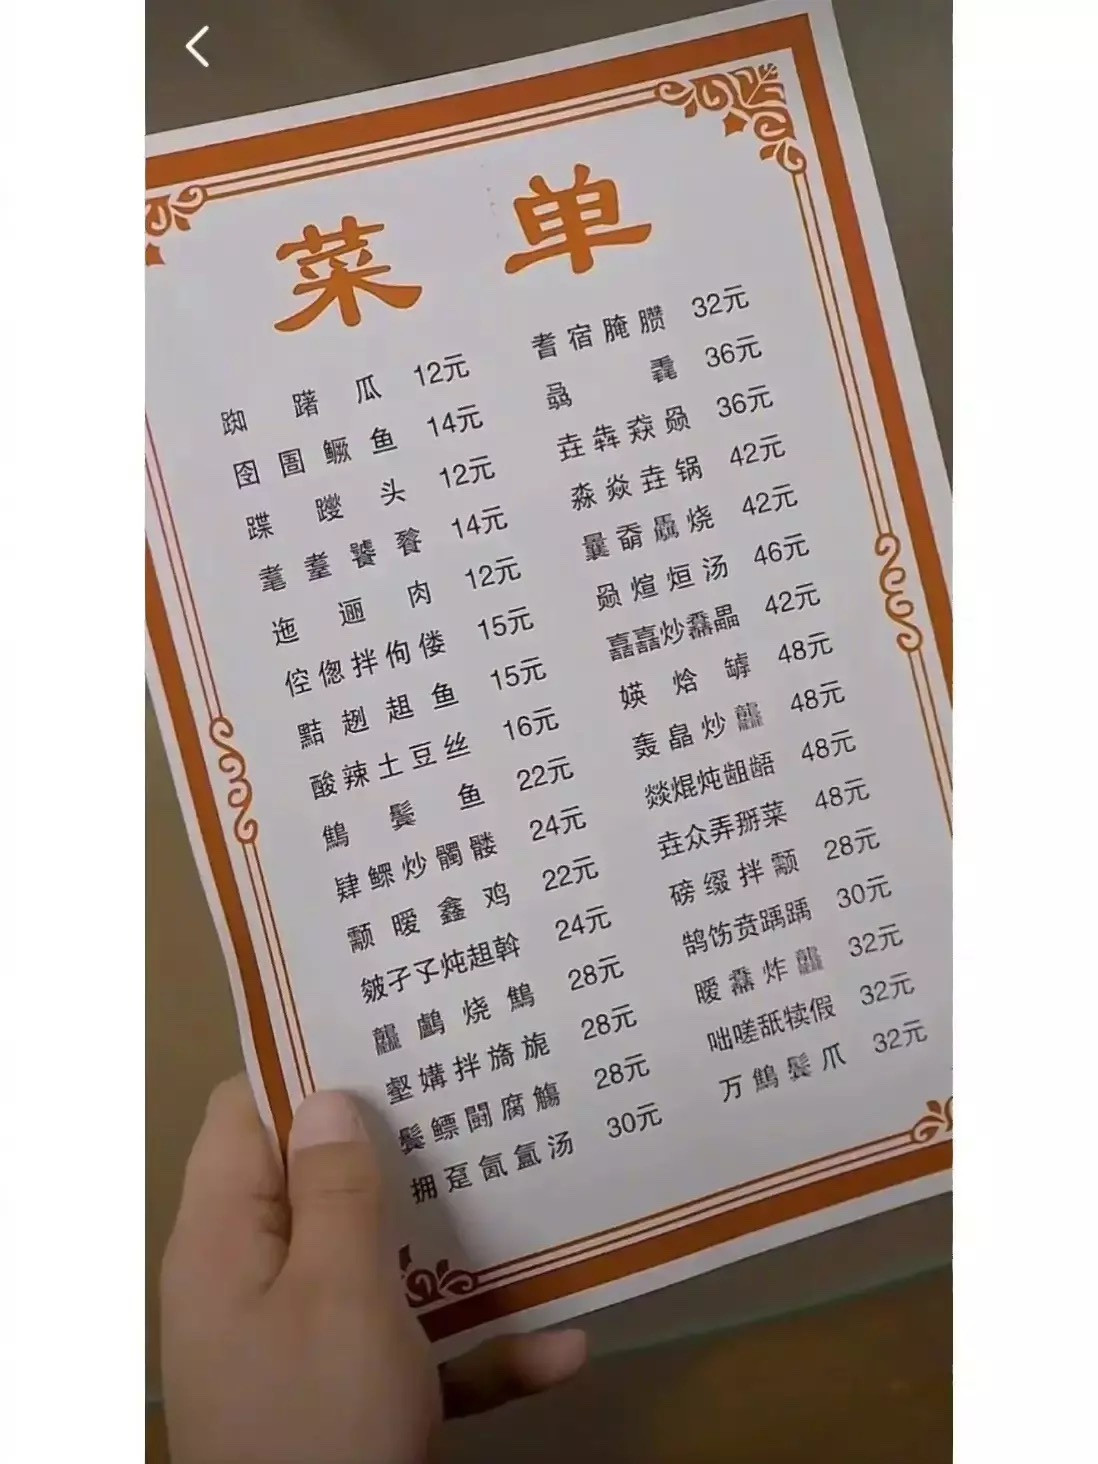 菜单
踟躇瓜 12元
囹圄鳜鱼 14元
蹀躞头 12元
耄耋饕餮 14元
迤逦肉 12元
倥偬拌佝偻 15元
黠趔趄鱼 15元
酸辣土豆丝 16元
鬓鱼 22元
肄鳏炒髑髅 24元
颥暧鑫鸡 22元
皴孑孓炖趄斡 24元
龘鸕烧鷦 28元
壑媾拌旖旎 28元
鬓鳔鬪腐觞 28元
拥趸氤氲汤 30元
耆宿腌臜 32元
骉毳 36元
垚犇猋赑 36元
淼焱垚锅 42元
曩奣聶烧 42元
赑煊烜汤 46元
嚞嚞炒馫畾 42元
媖焓罅 48元
轰皛炒龘 48元
燚焜炖龃龉 48元
垚众弄掰菜 48元
磅缀拌颥 28元
鹄饬贲踽踽 30元
暧馫炸龘 32元
咄嗟舐犊假 32元
万鷦鬓爪 32元